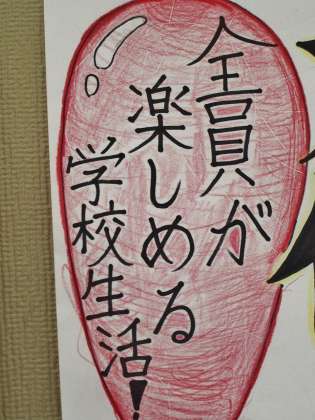 全員が
楽しめる
学校生活!